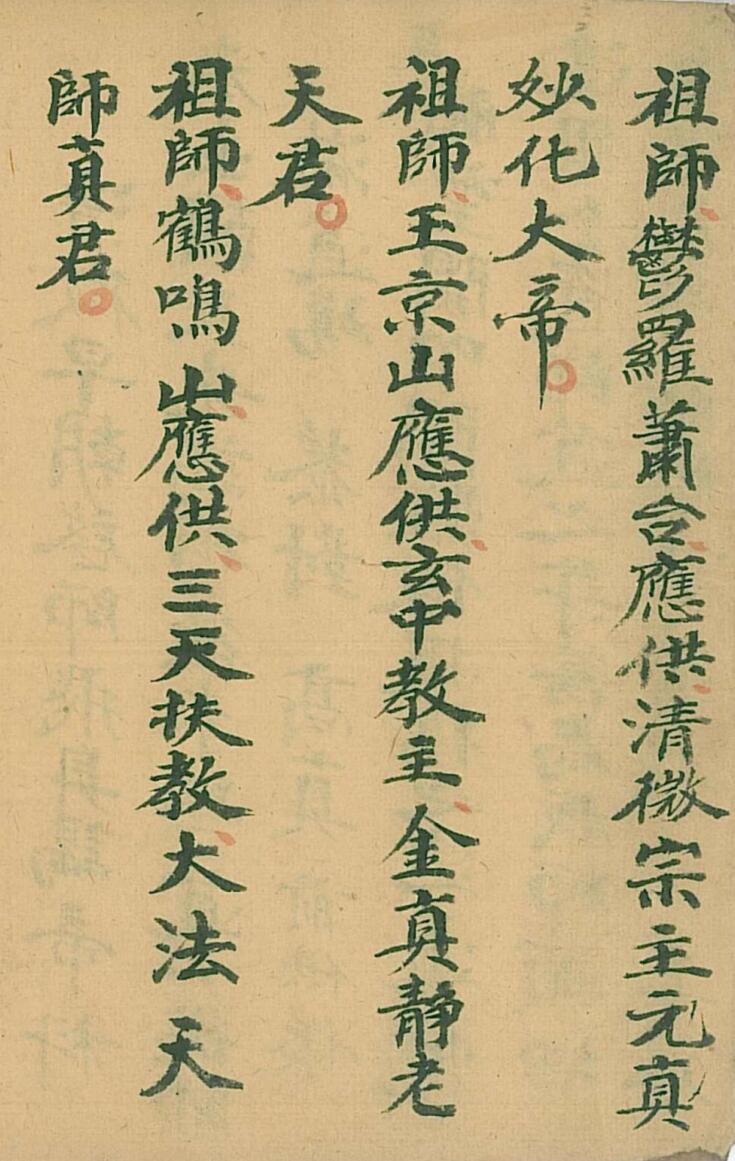 祖師鬱羅蕭台應供清微宗主元真
妙化大帝
祖師玉京山應供玄中教主金真静老
天君
祖師鶴鳴山應供三天扶教大法天
師真君